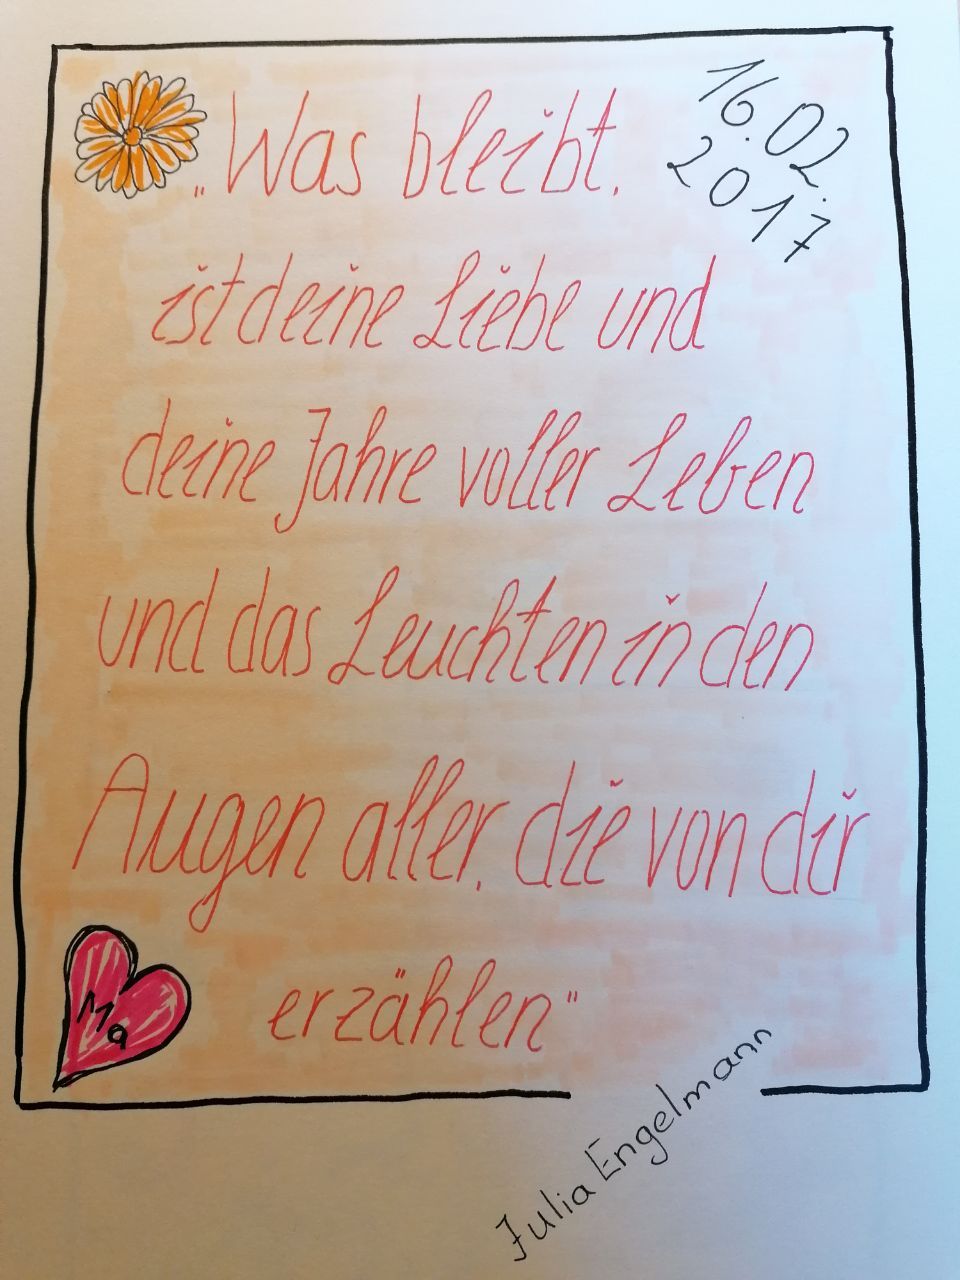 „Was bleibt,
16.02.
2017
ist deine Liebe und
deine Jahre voller Leben
und das Leuchten in den
Augen aller, die von dir
erzählen"
Ma
Julia Engelmann